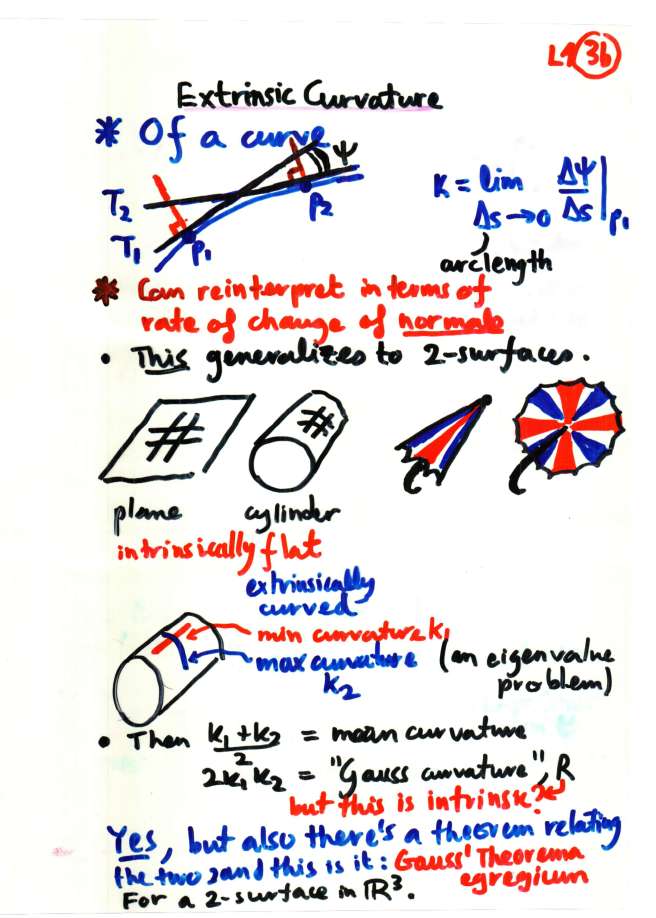 L9 36
Extrinsic Curvature
* Of a curve
Ψ
T2
P2
T1
P1
K = lim ΔΨ/Δs |P1
Δs→0
arclength
* Can reinterpret in terms of
rate of change of normals
• This generalizes to 2-surfaces.
plane cylinder
intrinsically flat
extrinsically
curved
min curvature k1
max curvature (an eigenvalue
k2 problem)
• Then k1+k2/2 = mean curvature
2k1k2 = "Gauss curvature", R
but this is intrinsic?
Yes, but also there's a theorem relating
the two and this is it: Gauss' Theorema
egregium
For a 2-surface in ℝ³.